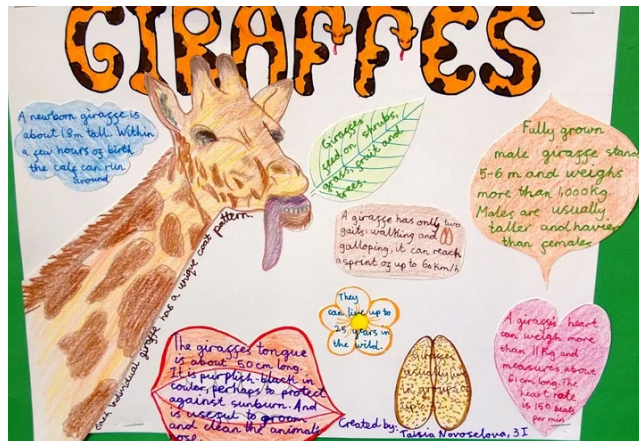 GIRAFFES
A newborn giraffe is
about 1.8m tall. Within
a few hours of birth
the calf can run
around
Giraffes
feed on shrubs,
grass, fruit and
trees.
Fully grown
male giraffe stand
5-6 m and weighs
more than 1,000kg.
Males are usually
taller and havier
than females
A giraffe has only two
gaits: walking and
galloping, it can reach
a sprint of up to 60 km/h
each individual giraffe has a unique coat pattern.
They
can live up to
25 years in
the wild.
The giraffes tongue
is about 50cm long.
It is purplish-black in
color, perhaps to protect
against sunburn. And
is useful to groom
and clean the animals
nose.
Giraffes
usually live
in groups of
up
A giraffe's heart
can weigh more
than 11Kg and
measures about
61cm long. The
heart rate
is 150 beats
per min
Created by: Taisia Novoselova, 3I